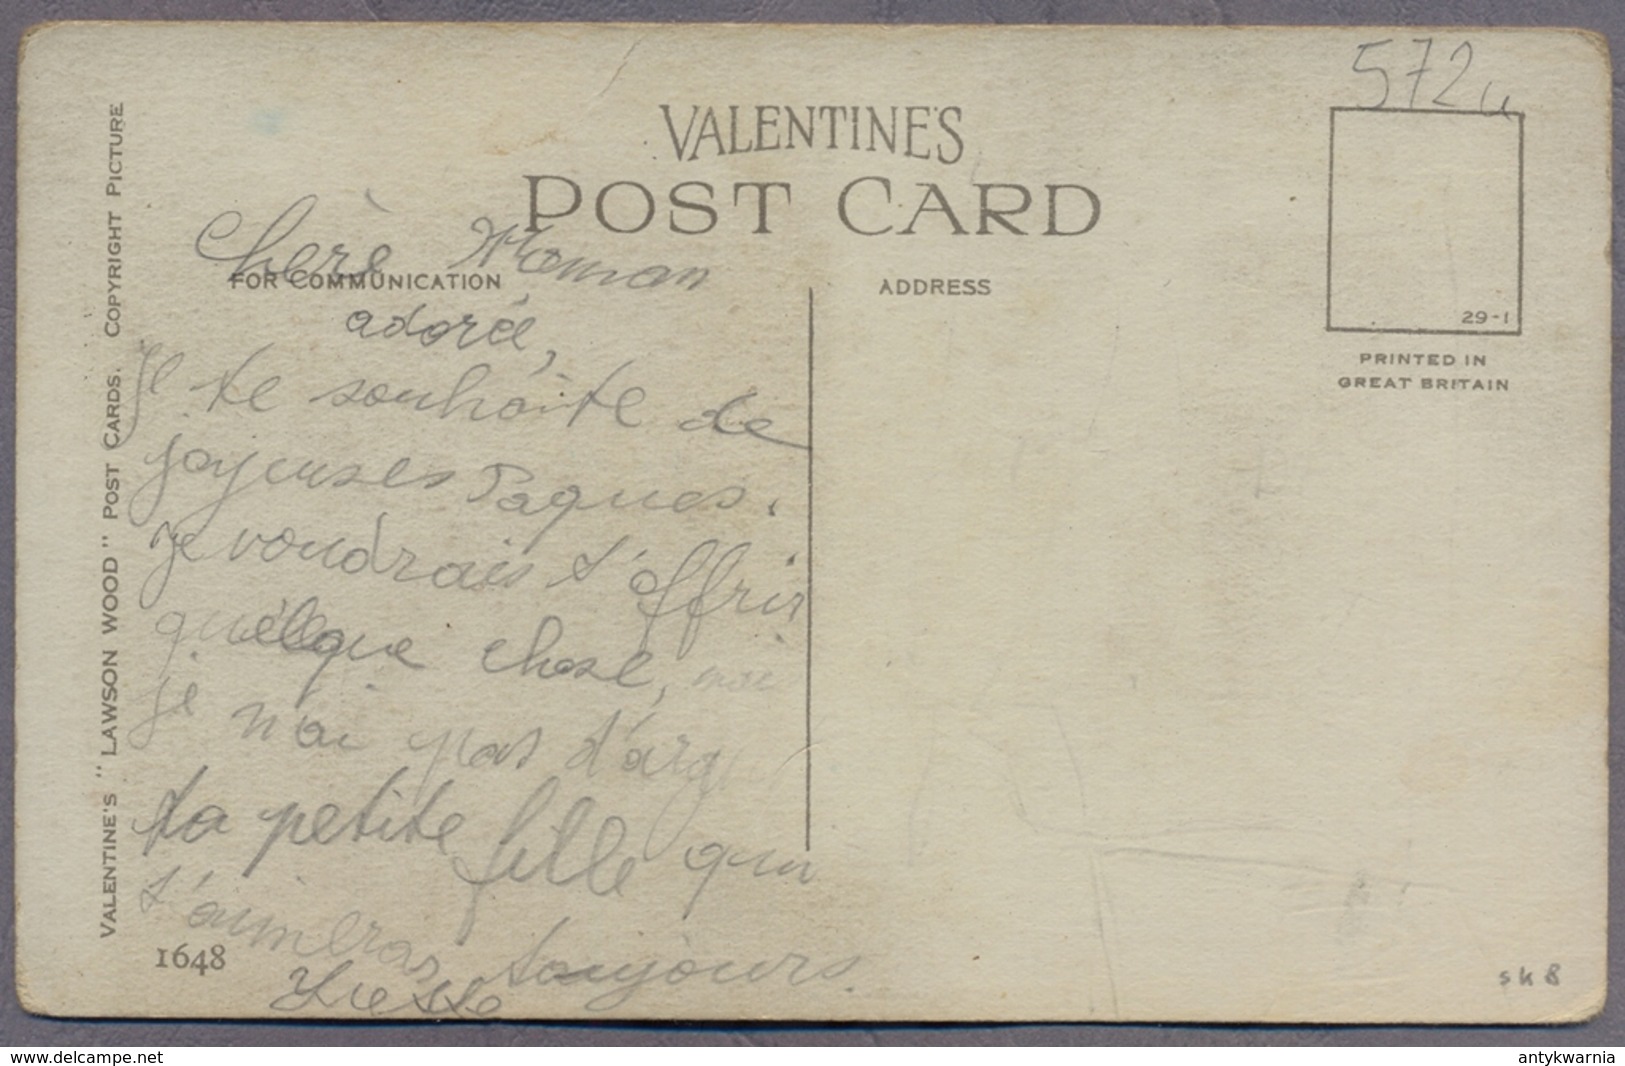 572u
VALENTINE'S
POST CARD
FOR COMMUNICATION
ADDRESS
29-1
PRINTED IN
GREAT BRITAIN
VALENTINE'S "LAWSON WOOD" POST CARDS. COPYRIGHT PICTURE
Chère Maman
adorée,
Je te souhaite de
joyeuses Paques.
je voudrais t'offrir
quélque chose, mai
je n'ai pas d'arg
ta petite fille qui
t'aimeras toujours.
1648
sk8
www.delcampe.net
antykwarnia